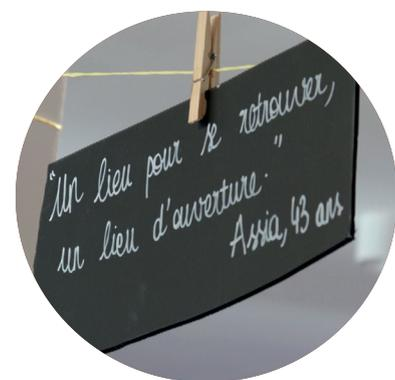 "Un lieu pour se retrouver,
un lieu d'ouverture."
Assia, 43 ans